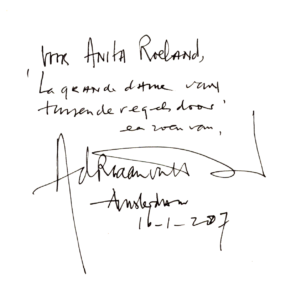 Voor Anita Roeland,
'La grande dame van
tussende regels door'
een zoen van,
Adriaan van D
Amsterdam
16-1-2007